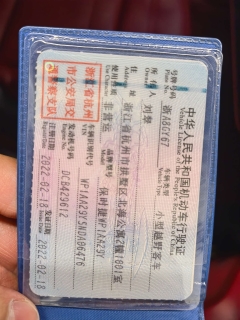 中华人民共和国机动车行驶证
Vehicle License of the People's Republic of China
号牌号码 浙A8GY67 车辆类型 小型越野客车
Plate No.
所有人 刘攀
Owner
住址 浙江省杭州市拱墅区北海公寓2幢1601室
Address
使用性质 非营运 保时捷WP1AA29Y
Use Character
浙江省杭州市公安局交通警察支队
车辆识别代号 WP1AA29Y5NDA06476
发动机号码 DCB429612
注册日期 2022-02-18 发证日期 2022-02-18